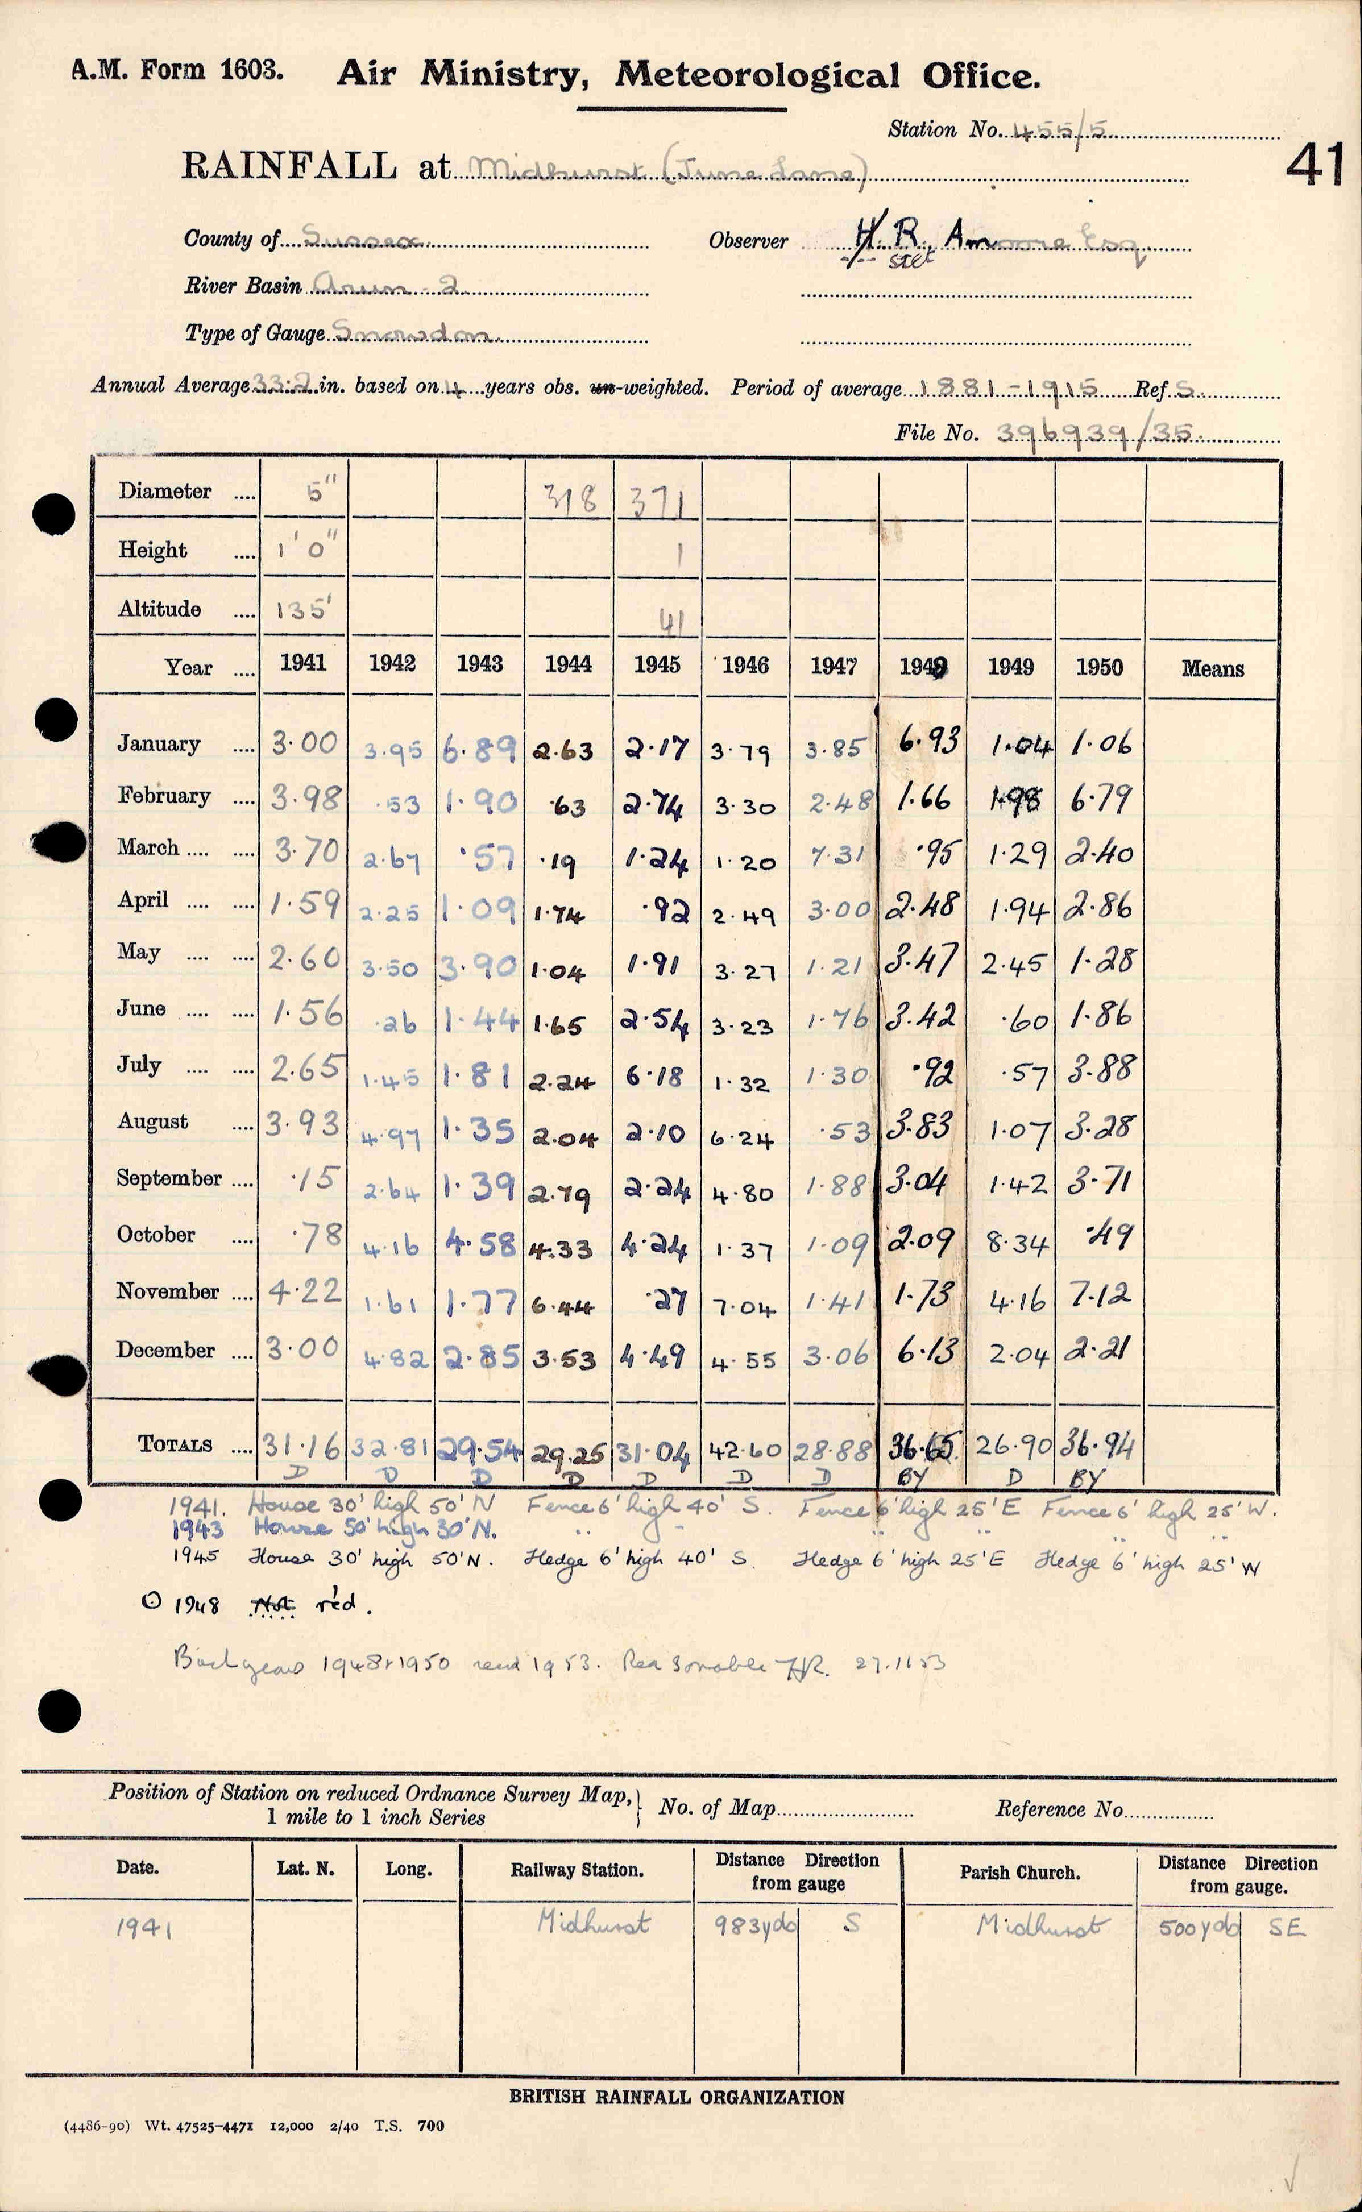 A.M. Form 1603. Air Ministry, Meteorological Office.
Station No. 455/5
41
RAINFALL at Midhurst (June Lane)
County of Sussex Observer H. R. Amoore Esq.
stet
River Basin Arun - 2
Type of Gauge Snowdon
Annual Average 33.2 in. based on 4 years obs. un-weighted. Period of average 1881-1915 Ref. S.
File No. 396939/35
Diameter .... 5" 318 371
Height .... 1' 0" 1
Altitude .... 135' 41
Year .... 1941 1942 1943 1944 1945 1946 1947 1948 1949 1950 Means
January .... 3.00 3.95 6.89 2.63 2.17 3.79 3.85 6.93 1.04 1.06
February .... 3.98 .53 1.90 .63 2.74 3.30 2.48 1.66 1.98 6.79
March .... .... 3.70 2.67 .57 .19 1.24 1.20 7.31 .95 1.29 2.40
April .... .... 1.59 2.25 1.09 1.74 .92 2.49 3.00 2.48 1.94 2.86
May .... .... 2.60 3.50 3.90 1.04 1.91 3.27 1.21 3.47 2.45 1.28
June .... .... 1.56 .26 1.44 1.65 2.54 3.23 1.76 3.42 .60 1.86
July .... .... 2.65 1.45 1.81 2.24 6.18 1.32 1.30 .92 .57 3.88
August .... 3.93 4.97 1.35 2.04 2.10 6.24 .53 3.83 1.07 3.28
September .... .15 2.64 1.39 2.79 2.24 4.80 1.88 3.04 1.42 3.71
October .... .78 4.16 4.58 4.33 4.24 1.37 1.09 2.09 8.34 .49
November .... 4.22 1.61 1.77 6.44 .27 7.04 1.41 1.73 4.16 7.12
December .... 3.00 4.82 2.85 3.53 4.49 4.55 3.06 6.13 2.04 2.21
TOTALS .... 31.16 32.81 29.54 29.25 31.04 42.60 28.88 36.65 26.90 36.94
D D D D D D D BY D BY
1941. House 30' high 50' N Fence 6' high 40' S. Fence 6' high 25' E Fence 6' high 25' W.
1943 House 50' high 30' N. " " " " "
1945 House 30' high 50' N. Hedge 6' high 40' S Hedge 6' high 25' E Hedge 6' high 25' W
1948 Not r'cd.
Back years 1948 & 1950 recd 1953. Reasonable 27.11.53
Position of Station on reduced Ordnance Survey Map, 1 mile to 1 inch Series } No. of Map Reference No.
Date. Lat. N. Long. Railway Station. Distance Direction from gauge Parish Church. Distance Direction from gauge.
1941 Midhurst 983 yds S Midhurst 500 yds SE
BRITISH RAINFALL ORGANIZATION
(4486-90) Wt. 47525-4471 12,000 2/40 T.S. 700